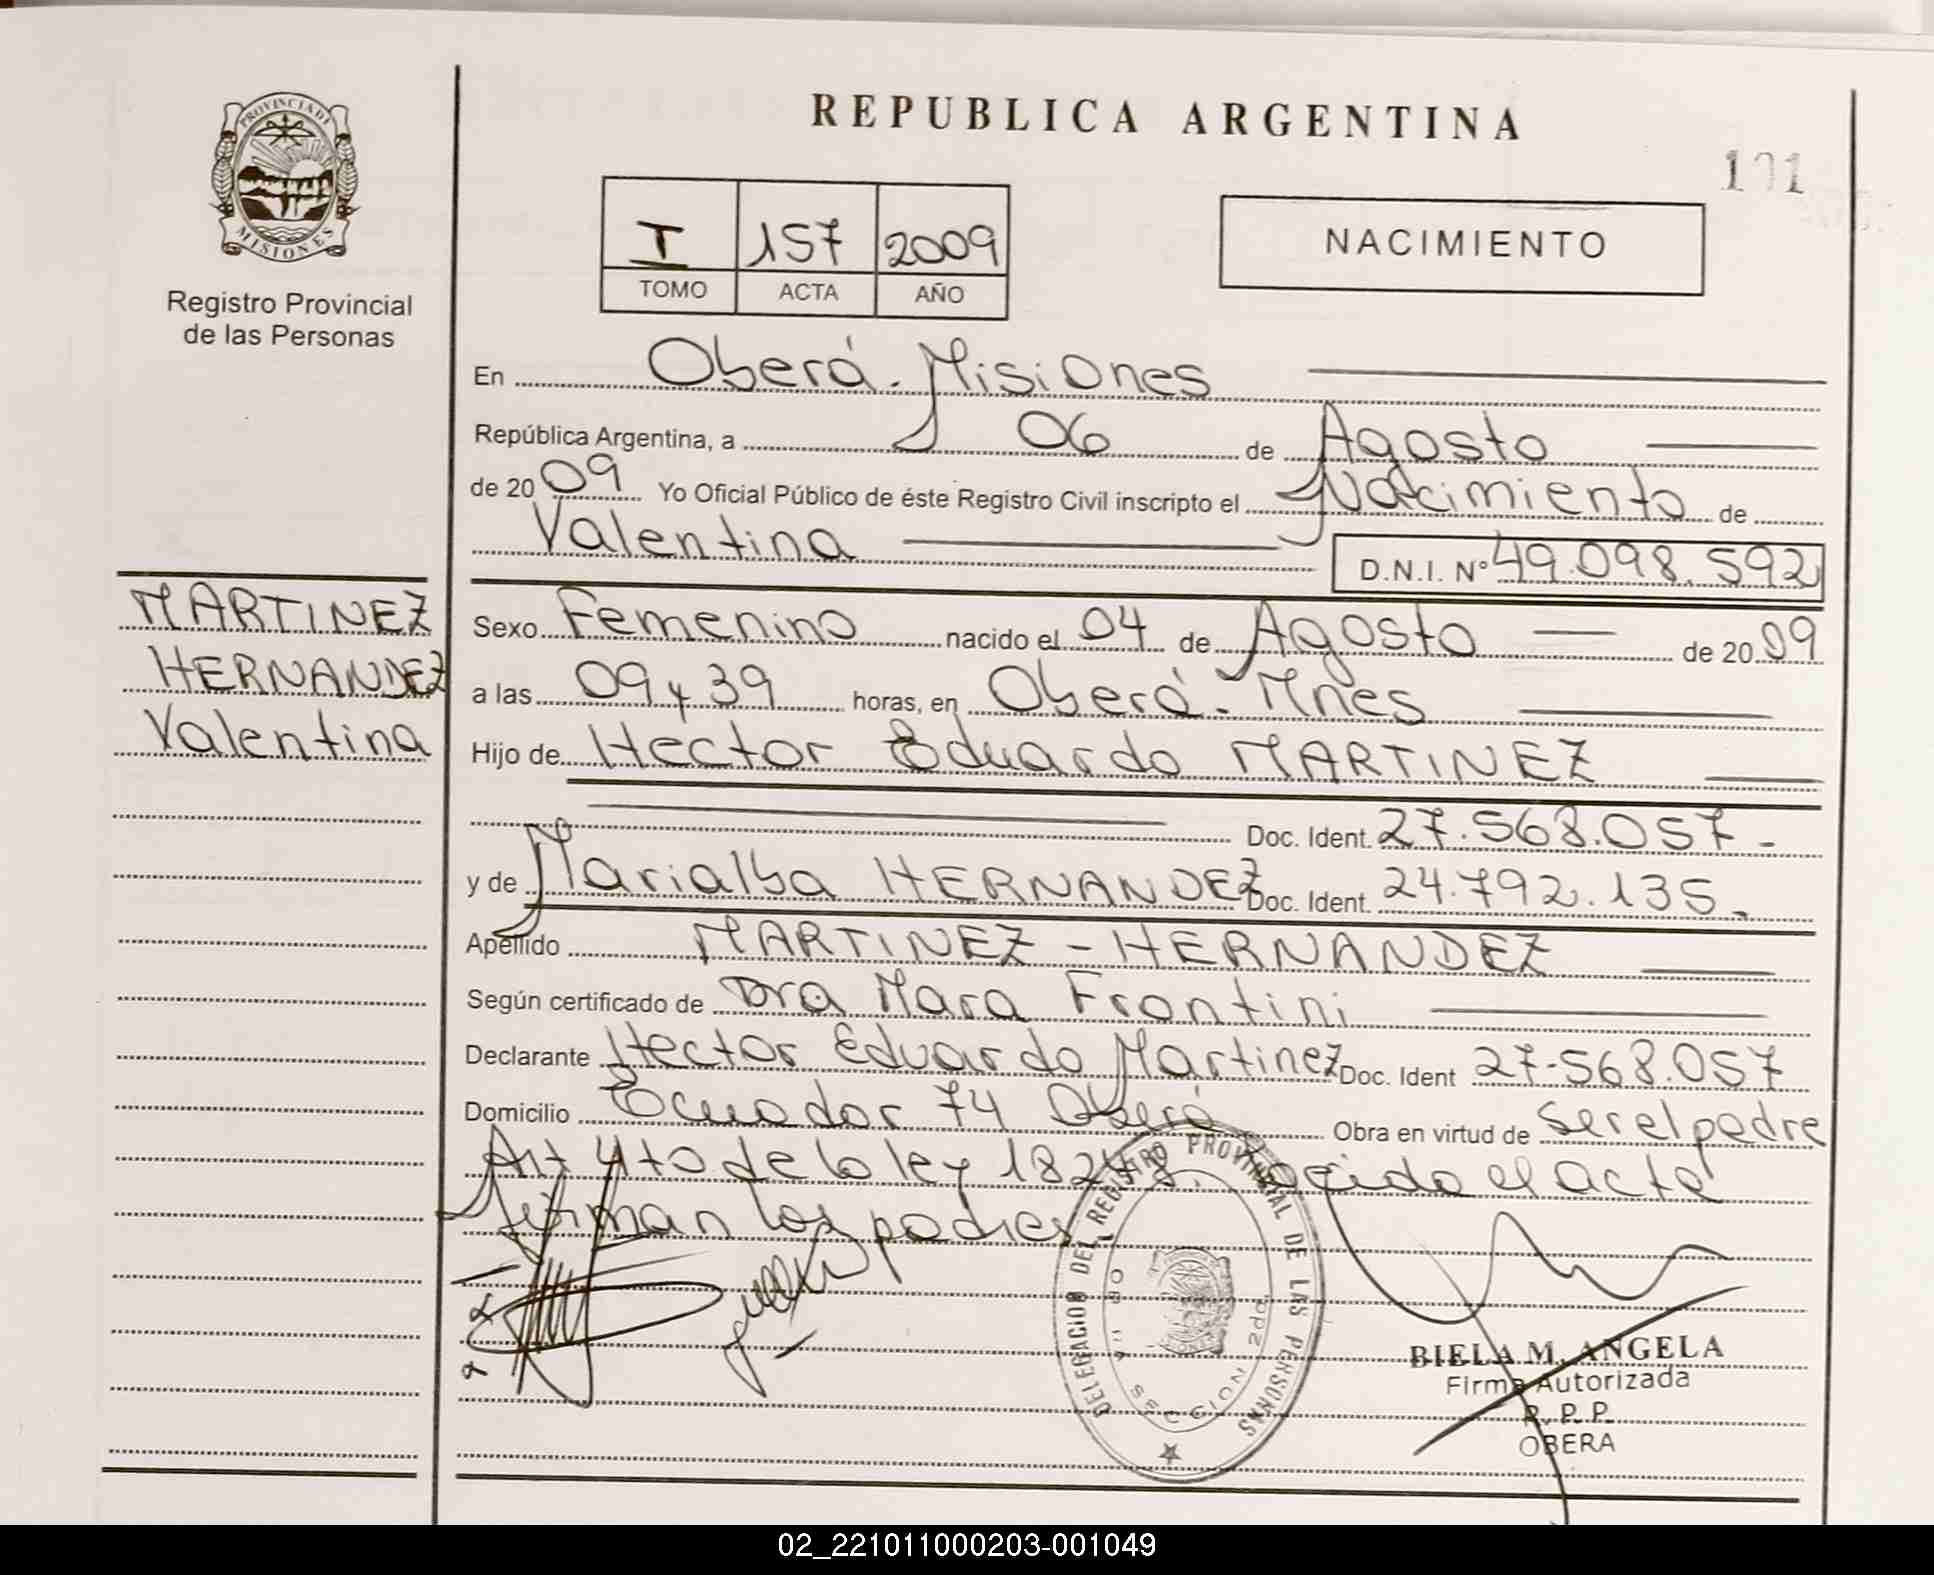 PROVINCIA DE
MISIONES
Registro Provincial
de las Personas
MARTINEZ
HERNANDEZ
Valentina
REPUBLICA ARGENTINA
I 157 2009
TOMO ACTA AÑO
NACIMIENTO
En Oberá. Misiones
República Argentina, a 06 de Agosto
de 2009 Yo Oficial Público de éste Registro Civil inscripto el Nacimiento de
Valentina D.N.I. Nº 49.098.592
Sexo Femenino nacido el 04 de Agosto de 2009
a las 09 y 39 horas, en Oberá. Mnes
Hijo de Hector Eduardo MARTINEZ
Doc. Ident. 27.568.057.-
y de Marialba HERNANDEZ Doc. Ident. 24.792.135.
Apellido MARTINEZ - HERNANDEZ
Según certificado de Dra Mara Frontini
Declarante Hector Eduardo Martinez Doc. Ident 27-568.057
Domicilio Ecuador 74 Oberá Obra en virtud de ser el padre
Art 4to de la ley 18248. el acta
firman los padres
DELEGACION DEL REGISTRO PROVINCIAL DE LAS PERSONAS
SECCION 2da
BIELA M. ANGELA
Firma Autorizada
R. P. P.
OBERA
02_221011000203-001049